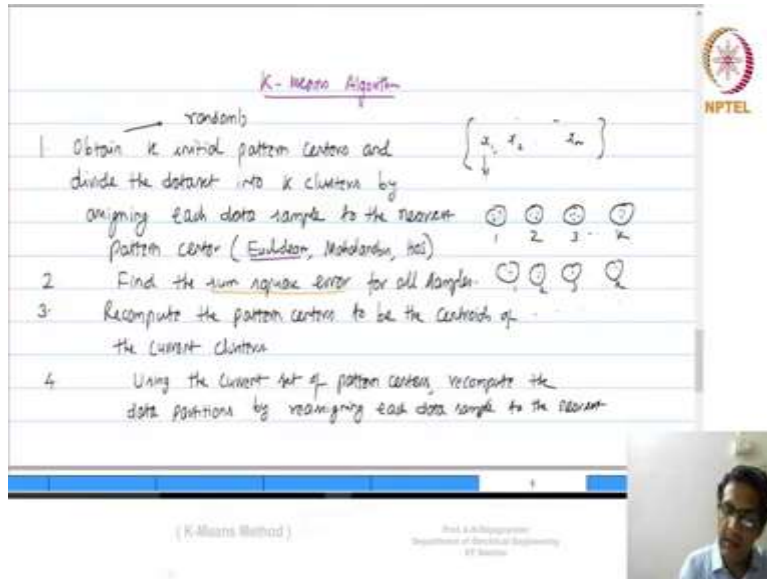 K-Means Algorithm
randomly
1 Obtain k initial pattern centers and
divide the dataset into k clusters by
assigning each data sample to the nearest
pattern center (Euclidean, Mahalanobis,
2 Find the sum square error for all samples.
3. Recompute the pattern centers to be the centroids of
the current clusters
4 Using the current set of pattern centers, recompute the
data partitions by reassigning each data sample to the nearest
{ x1 x2 xn }
1 2 3 .. k
NPTEL
( K-Means Method )
Department of Electrical Engineering